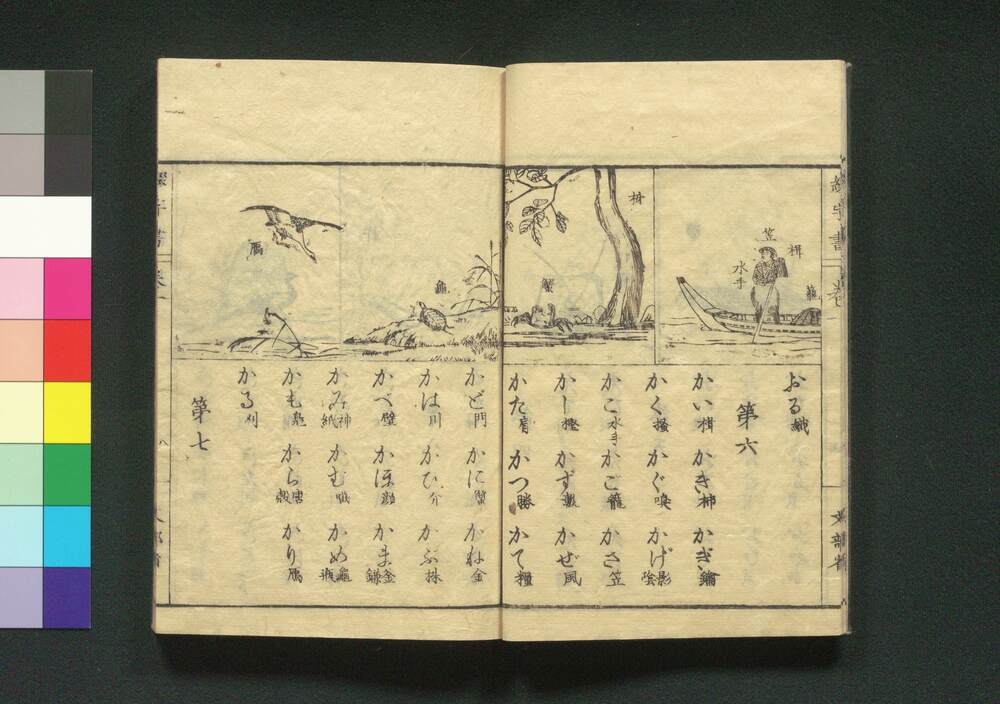 綴字書 巻一
文部省
楫
笠
水手
籠
楫
蟹
龜
鴈
おる 織
第六
かい 楫 かき 柿 かぎ 鑰
かく 搔 かぐ 嗅 かげ 影 陰
かこ 水手 かご 籠 かさ 笠
かし 樫 かず 數 かぜ 風
かた 肩 かつ 勝 かて 糧
かど 門 かに 蟹 かね 金
かは 川 かひ 介 かぶ 株
かべ 壁 かほ 顏 かま 釜 鎌
かみ 神 紙 かむ かめ 龜 瓶
かも 鳧 から 唐 殼 かり 鴈
かる 刈
第七